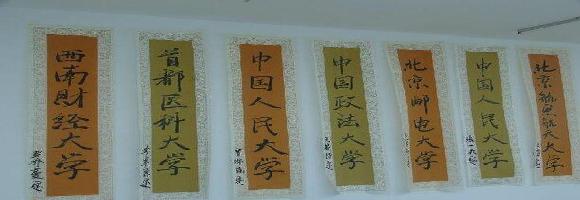 西南财经大学
首都医科大学
中国人民大学
中国政法大学
北京邮电大学
中国人民大学
北京航空航天大学